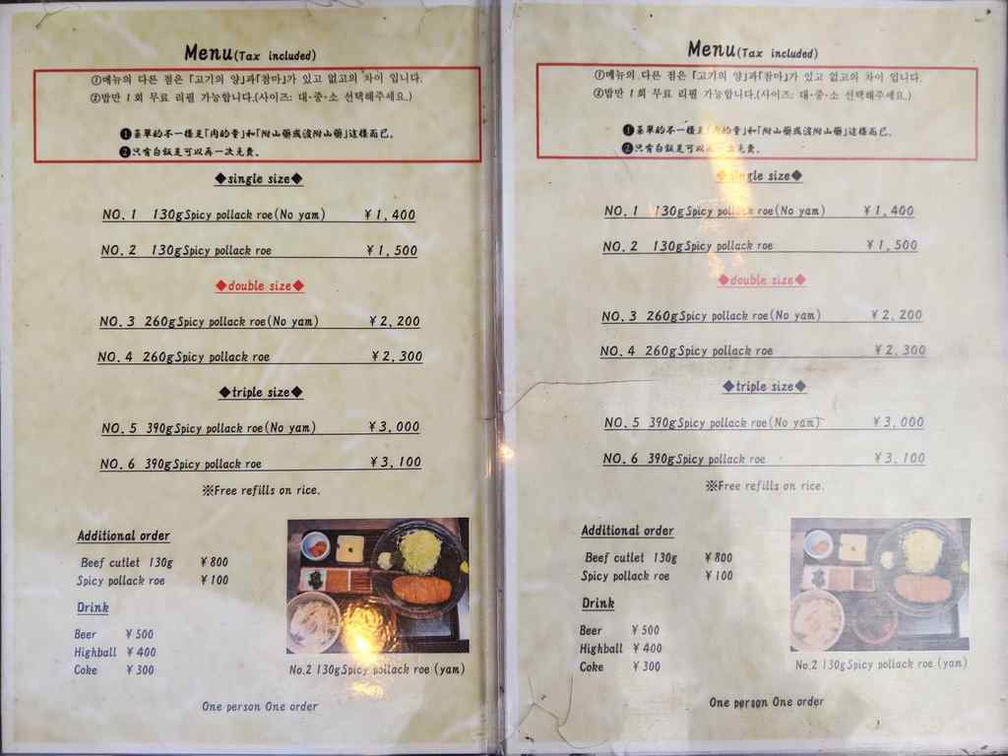 Menu(Tax included)
①메뉴의 다른 점은 「고기의 양」과「참마」가 있고 없고의 차이 입니다.
②밥만 1회 무료 리필 가능합니다.(사이즈: 대·중·소 선택해주세요.)
❶菜單的不一樣是「肉的量」和「附山藥或沒附山藥」這樣而已。
❷只有白飯是可以再一次免費。
◆single size◆
NO. 1 130gSpicy pollack roe(No yam) ¥1,400
NO. 2 130gSpicy pollack roe ¥1,500
◆double size◆
NO. 3 260gSpicy pollack roe(No yam) ¥2,200
NO. 4 260gSpicy pollack roe ¥2,300
◆triple size◆
NO. 5 390gSpicy pollack roe(No yam) ¥3,000
NO. 6 390gSpicy pollack roe ¥3,100
※Free refills on rice.
Additional order
Beef cutlet 130g ¥800
Spicy pollack roe ¥100
Drink
Beer ¥500
Highball ¥400
Coke ¥300
No.2 130gSpicy pollack roe (yam)
One person One order
Menu(Tax included)
①메뉴의 다른 점은 「고기의 양」과「참마」가 있고 없고의 차이 입니다.
②밥만 1회 무료 리필 가능합니다.(사이즈: 대·중·소 선택해주세요.)
❶菜單的不一樣是「肉的量」和「附山藥或沒附山藥」這樣而已。
❷只有白飯是可以再一次免費。
◆single size◆
NO. 1 130gSpicy pollack roe(No yam) ¥1,400
NO. 2 130gSpicy pollack roe ¥1,500
◆double size◆
NO. 3 260gSpicy pollack roe(No yam) ¥2,200
NO. 4 260gSpicy pollack roe ¥2,300
◆triple size◆
NO. 5 390gSpicy pollack roe(No yam) ¥3,000
NO. 6 390gSpicy pollack roe ¥3,100
※Free refills on rice.
Additional order
Beef cutlet 130g ¥800
Spicy pollack roe ¥100
Drink
Beer ¥500
Highball ¥400
Coke ¥300
No.2 130gSpicy pollack roe (yam)
One person One order